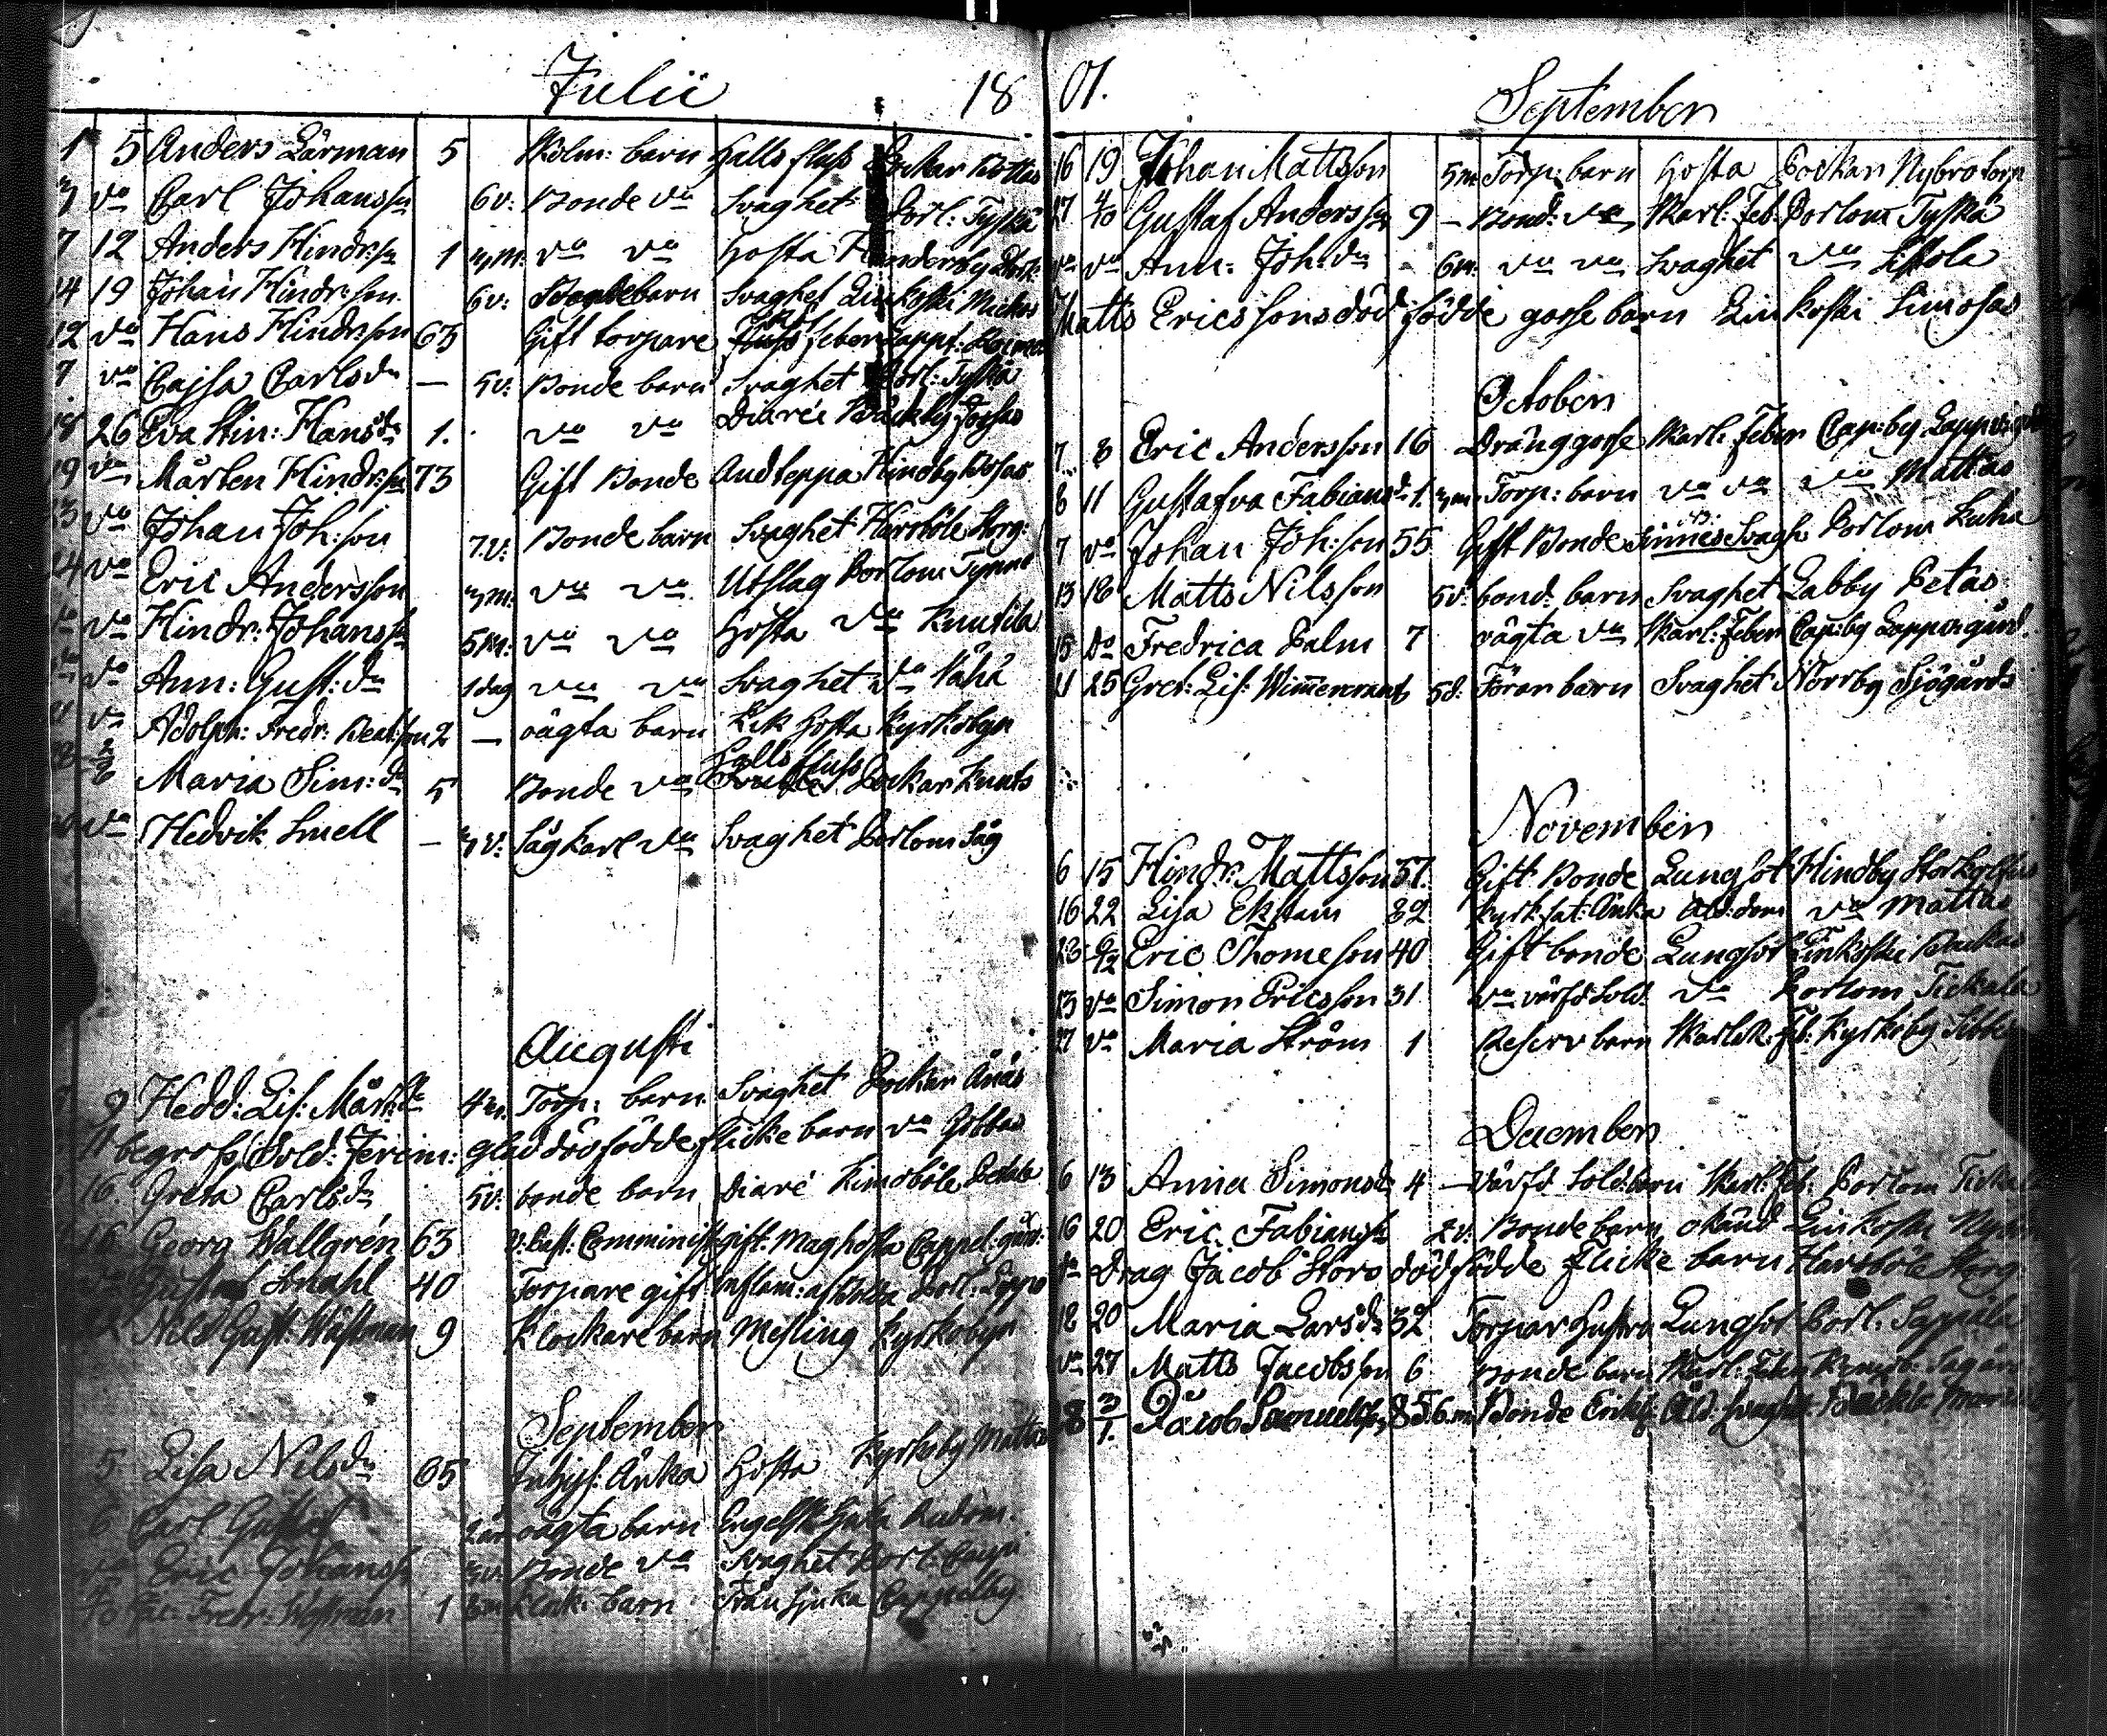 Julii 18
1 5 Anders Lärman 5 Skolm: barn Halls fluss Pockar Bottas
3 do Carl Johanss:n 6v: Bonde do Svaghet Porl: Tyskä
7 12 Anders Hindr:sn 1 3m: do do Hosta
14 19 Johan Hindr:son 6v: Bonde barn Svaghet Linkoski Mickos
12 do Hans Hindr:son 63 Gift torpare feber Lappt:
7 do Cajsa Carlsdr — 5v: Bonde barn Svaghet Porl: Tyskä
18 26 Eva Stin: Hansdr 1. do do Diarée Bäckby Jossas
19 do Mårten Hindr:sn 73 Gift Bonde Andteppa Hindby Bosas
23 do Johan Joh:son 7.v: Bonde barn Svaghet Harsböle Storg:
24 do Eric Andersson 3m: do do Utslag Porlom Tynni
do do Hindr: Johanss:n 5m: do do Hosta do Knutila
do do Ann: Gust:dr 1 dag do do Svaghet do Kähä
do Adolph: Fredr: 2 — oägta barn Kik Hosta Kyrkobyn
2/8 Maria Sim:dr 5 Bonde do Halls fluss Pockar Knuts
do Hedvik Snell — 3v: Såg karl do Svaghet Porlom Såg
Augusti
9 Hedd: Lis: Mårt:dr 4m. Torp: barn Svaghet Pockar Änäs
11 begrofs Sold: Jerem: Glad dödfödde flicke barn do Gobbas
16. Greta Carlsdr 5v: bonde barn Diaré Kimoböle
16 Georg Wallgrén 63 V: Past: Comminist: gift. Maghosta Cappel: gård:
do Gustaf Smahl 40 Torpare gift Inflam: af Porl:
Nils Gust: Wästman 9 Klockare barn Mesling Kyrkobyn
September
5. Lisa Nilsdr 65 Inhys: Änka Hosta Kyrkoby Mattas
6 Carl Gustaf 2 oägta barn Engelsk Sjuka
do Eric Johanss:n 3v: Bonde do Svaghet Porl:
Fredr: Wästman 1 Klock: barn Från sjuka Cappelby
01.
September
16 19 Johan Mattsson 5m Torp: barn Hosta Pockar Nybro torp
27 4/10 Gustaf Anderss:n 9 — Bond: do Skarl: Feb: Porlom Tyskä
do do Ann: Joh:dr 6m: do do Svaghet do Sistola
Matts Ericssons död födde gosse barn Linkoski Simosas
October
7 8 Eric Andersson 16 Dränggosse Skarl: Feber Cap:by
8 11 Gustafva Fabiansdr 1. 3m Torp: barn do do do Mattas
7 do Johan Joh:son 55 Gift Bonde Sinnes Svagh: Porlom Kuha
13 18 Matts Nilsson 5v: bond: barn Svaghet Labby Petas
15 do Fredrica Palm 7 oägta do Skarl: Feber Cap:by Lappnor gård.
21 25 Gret: Lis: Wimmercrants 5d: Förar barn Svaghet Norrby Sjögårds
November
6 15 Hindr: Mattsson 57. Gift Bonde Lungsot Hindby
16 22 Lisa Ekstam 82 Kyrk fat: Änka Åld:dom do Mattas
23 2/12 Eric Thomeson 40 Gift bonde Lungsot Linkoski Backas
13 do Simon Ericsson 31 do värfd Sold: do Porlom Tickala
27 do Maria Ström 1 Reserv barn Skarlk: Feb: Kyrkoby
December
6 13 Anna Simonsdr 4 — Värfd Sold: barn Skarl: Feb: Porlom
16 20 Eric Fabianss:n 2v: Bonde barn okänd Linkoski
do Drag Jacob Storo dödfödde flicke barn Harsböle Storg
18 20 Maria Larsdr 32 Torpar hustru Lungsot Porl: Seppälä
do 27 Matts Jacobsson 6 Bonde barn Skarl: Feber
28 3/1. Jacob Samuelsson 85. 6.m Bonde Enkl: Åld: svaghet